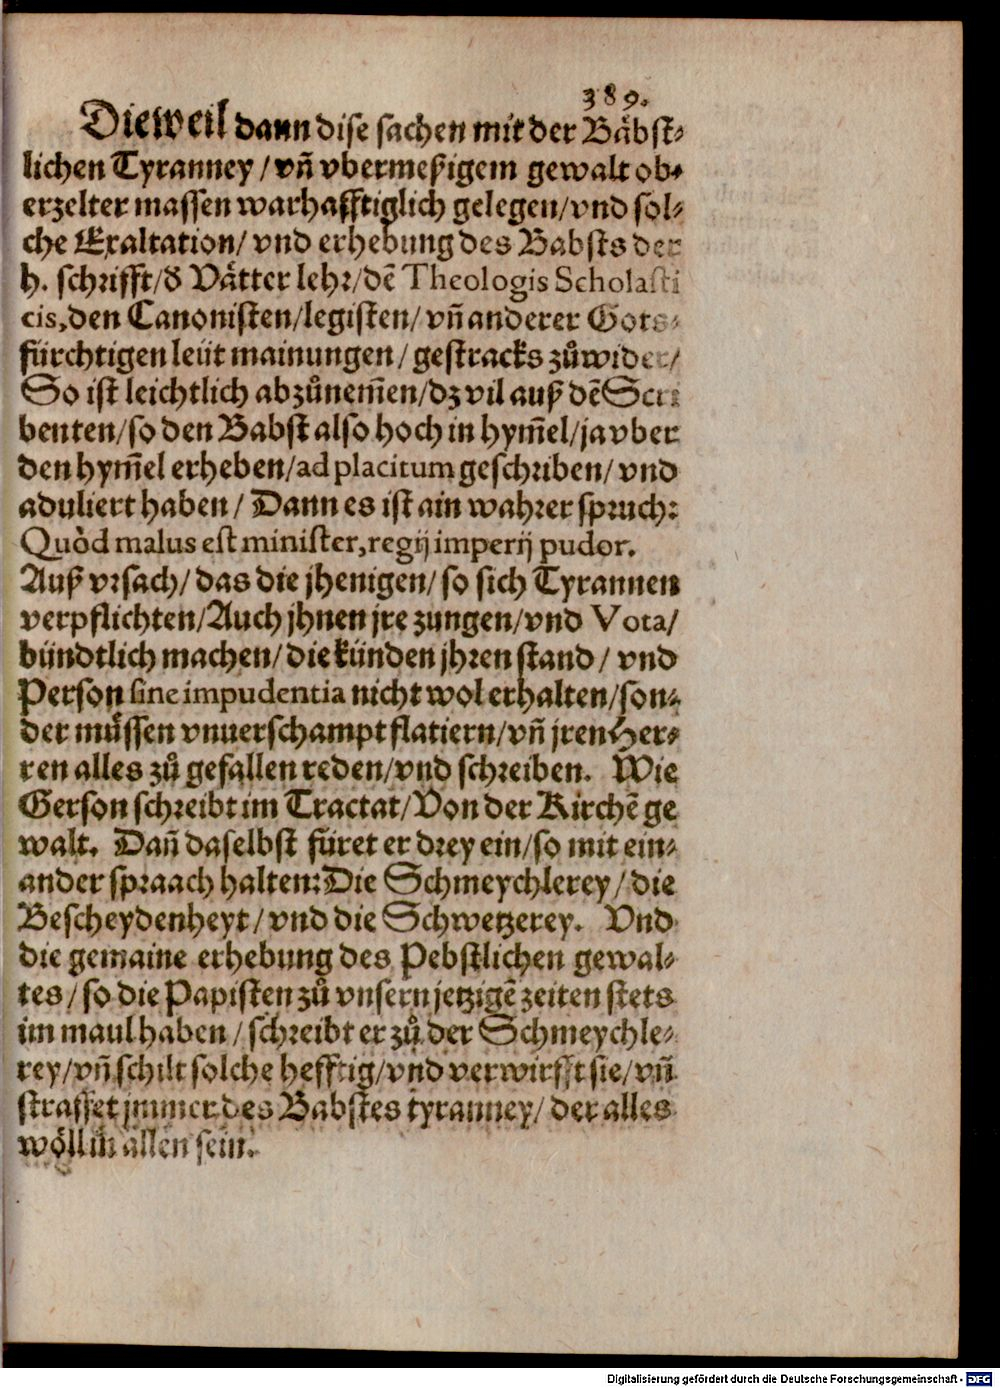 389.
Dieweil dann dise sachen mit der Bäbst-
lichen Tyranney / vñ vbermeßigem gewalt ob-
erzelter massen warhafftiglich gelegen / vnd sol-
che Exaltation / vnd erhebung des Babsts der
h. schrifft / ð Vätter lehr / dẽ Theologis Scholasti
cis, den Canonisten / legisten / vñ anderer Gots-
fürchtigen leüt mainungen / gestracks zůwider /
So ist leichtlich abzůnem̃en / dz vil auß dẽ Scri
benten / so den Babst also hoch in hym̃el / ja vber
den hym̃el erheben / ad placitum geschriben / vnd
aduliert haben / Dann es ist ain wahrer spruch:
Quòd malus est minister, regij imperij pudor.
Auß vrsach / das die jhenigen / so sich Tyrannen
verpflichten / Auch jhnen jre zungen / vnd Vota /
bündtlich machen / die künden jhren stand / vnd
Person sine impudentia nicht wol erhalten / son-
der müssen vnuerschampt flatiern / vñ jren Her-
ren alles zů gefallen reden / vnd schreiben. Wie
Gerson schreibt im Tractat / Von der Kirchẽ ge
walt. Dañ daselbst füret er drey ein / so mit ein-
ander spraach halten: Die Schmeychlerey / die
Bescheydenheyt / vnd die Schwetzerey. Vnd
die gemaine erhebung des Pebstlichen gewal-
tes / so die Papisten zů vnsern jetzigẽ zeiten stets
im maul haben / schreibt er zů der Schmeychle-
rey / vñ schilt solche hefftig / vnd verwirfft sie / vñ
straffet jmmer des Babstes tyranney / der alles
wöll in allen sein.
Digitalisierung gefördert durch die Deutsche Forschungsgemeinschaft - DFG